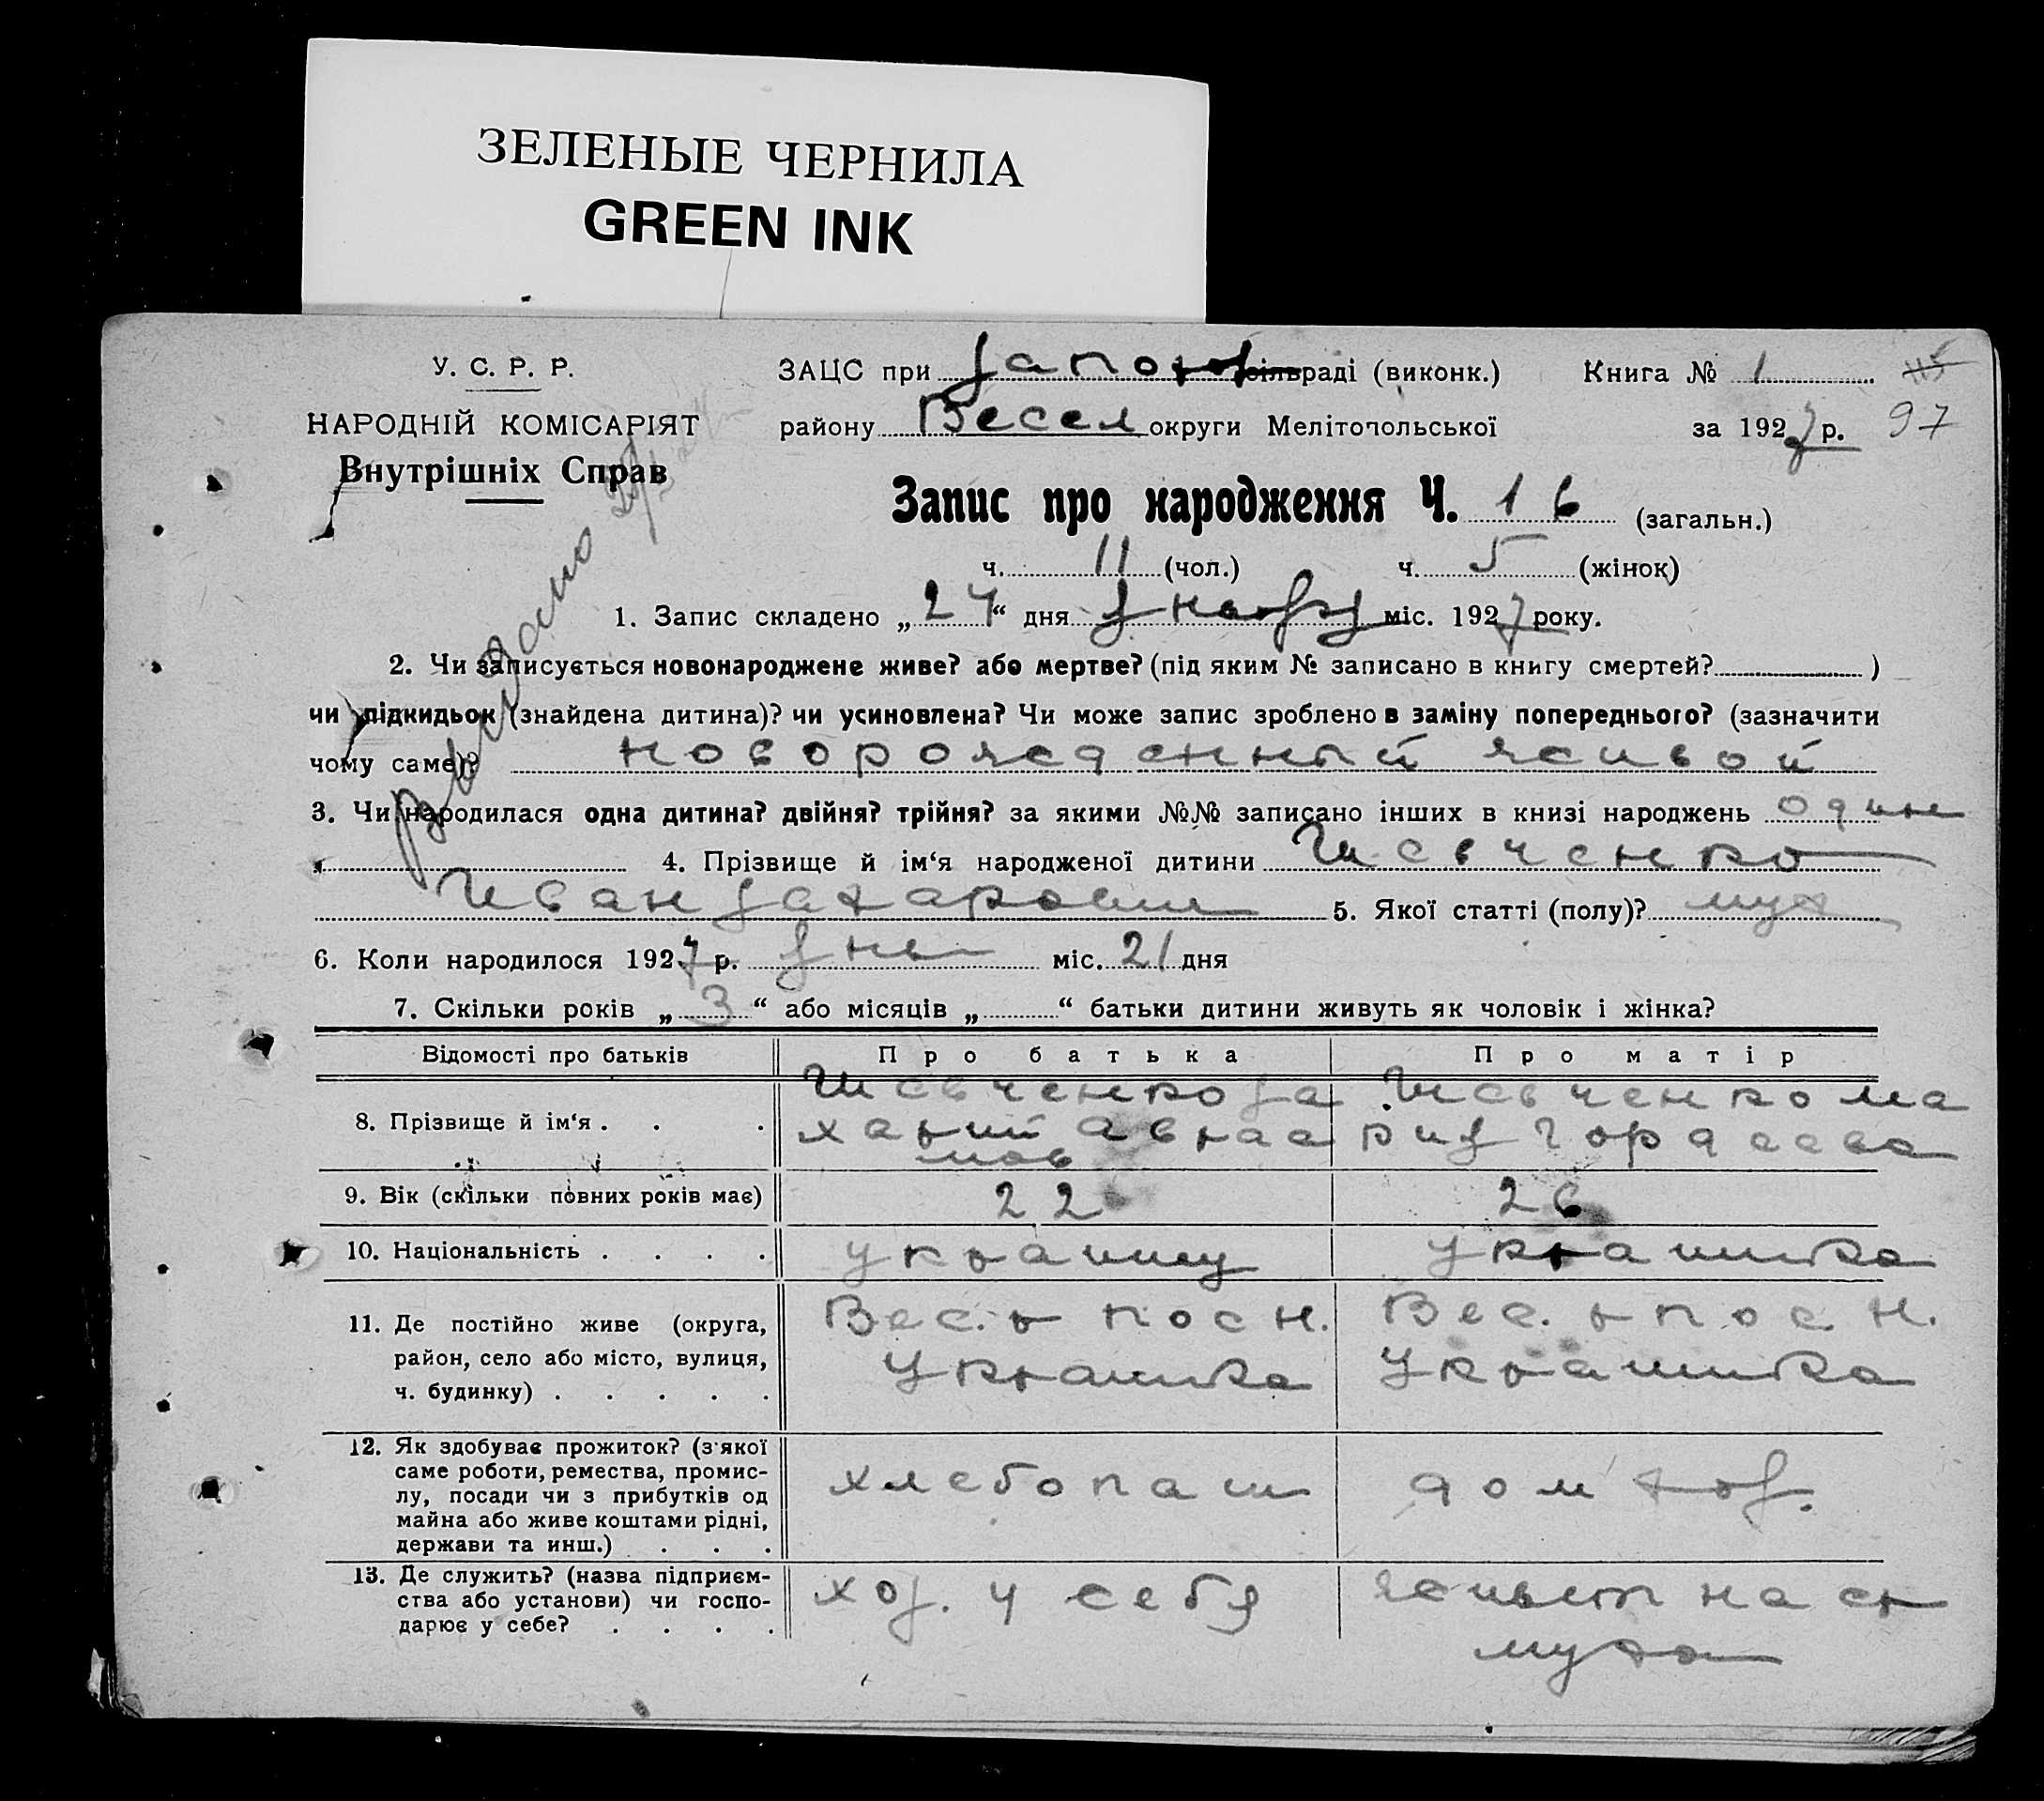 ЗЕЛЕНЫЕ ЧЕРНИЛА
GREEN INK
У. С. Р. Р.
НАРОДНІЙ КОМІСАРІЯТ
Внутрішніх Справ
ЗАЦС при сільраді (виконк.) Книга № 1
району Весел округи Мелітопольської за 1927 р. 97
Запис про народження Ч. 16 (загальн.)
ч. 11 (чол.) ч. 5 (жінок)
1. Запис складено „24“ дня января міс. 1927 року.
2. Чи записується новонароджене живе? або мертве? (під яким № записано в книгу смертей? )
чи підкидьок (знайдена дитина)? чи усиновлена? Чи може запис зроблено в заміну попереднього? (зазначити
чому саме)? новорожденный живой
3. Чи народилася одна дитина? двійня? трійня? за якими №№ записано інших в книзі народжень один
4. Прізвище й ім‘я народженої дитини Шевченко
Иван Захарович 5. Якої статті (полу)? муж
6. Коли народилося 1927 р. янв міс. 21 дня
7. Скільки років „3“ або місяців „ “ батьки дитини живуть як чоловік і жінка?
Відомості про батьків Про батька Про матір
8. Прізвище й ім‘я . . . Шевченко За Шевченко Ма
харий Авраа рия Гордеева
мов
9. Вік (скільки повних років має) 22 26
10. Національність . . . . украинец украинка
11. Де постійно живе (округа, Вес. р пос Н. Вес. р пос Н.
район, село або місто, вулиця, Украинка Украинка
ч. будинку) . . . . .
12. Як здобуває прожиток? (з'якої
саме роботи, ремества, промис- хлебопаш дом хоз.
лу, посади чи з прибутків од
майна або живе коштами рідні,
держави та инш.) . . .
13. Де служить? (назва підприєм- хоз. у себя живет на ср
ства або установи) чи госпо-
дарює у себе? . . . . мужа
Выдано